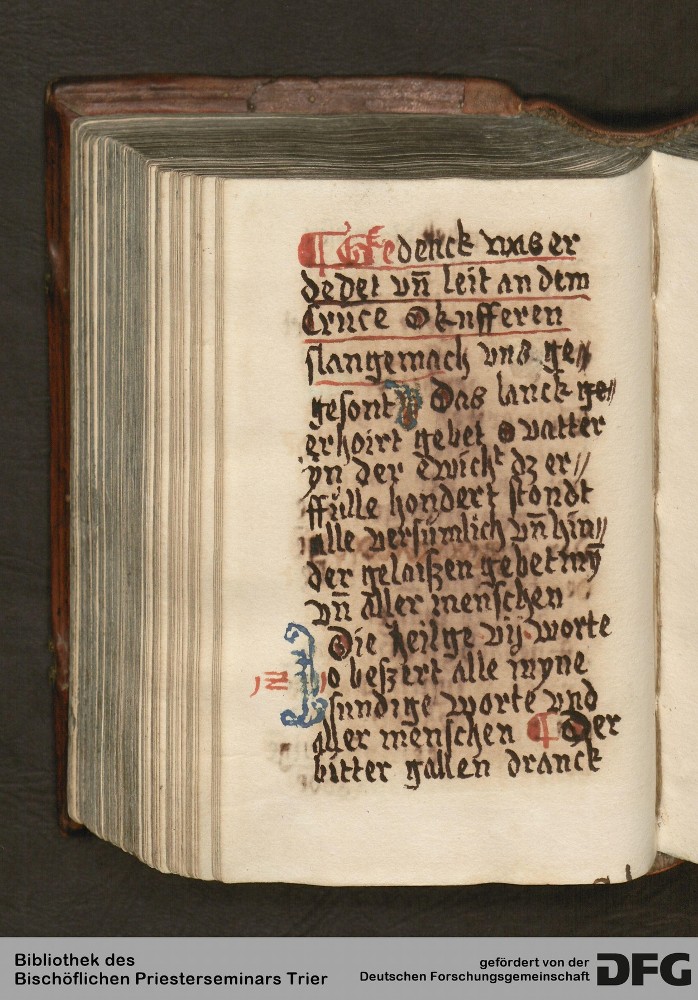 ¶ Gedenck was er
dedet vn̄ leit an dem
Cruce O kufferen
slangemach vns ge〃
gesont Das lanck ge〃
erhoirt gebet O vatter
yn der ewickt dz er〃
ffulle hondert stondt
alle versümlich vn̄ hin〃
der gelaißen gebet mȳ
vn̄ aller menschen
Die heilge vij worte
Jo beßert alle myne
sundige worte vnd
aller menschen ¶ Der
bitter gallen dranck
Bibliothek des
Bischöflichen Priesterseminars Trier
gefördert von der
Deutschen Forschungsgemeinschaft
DFG